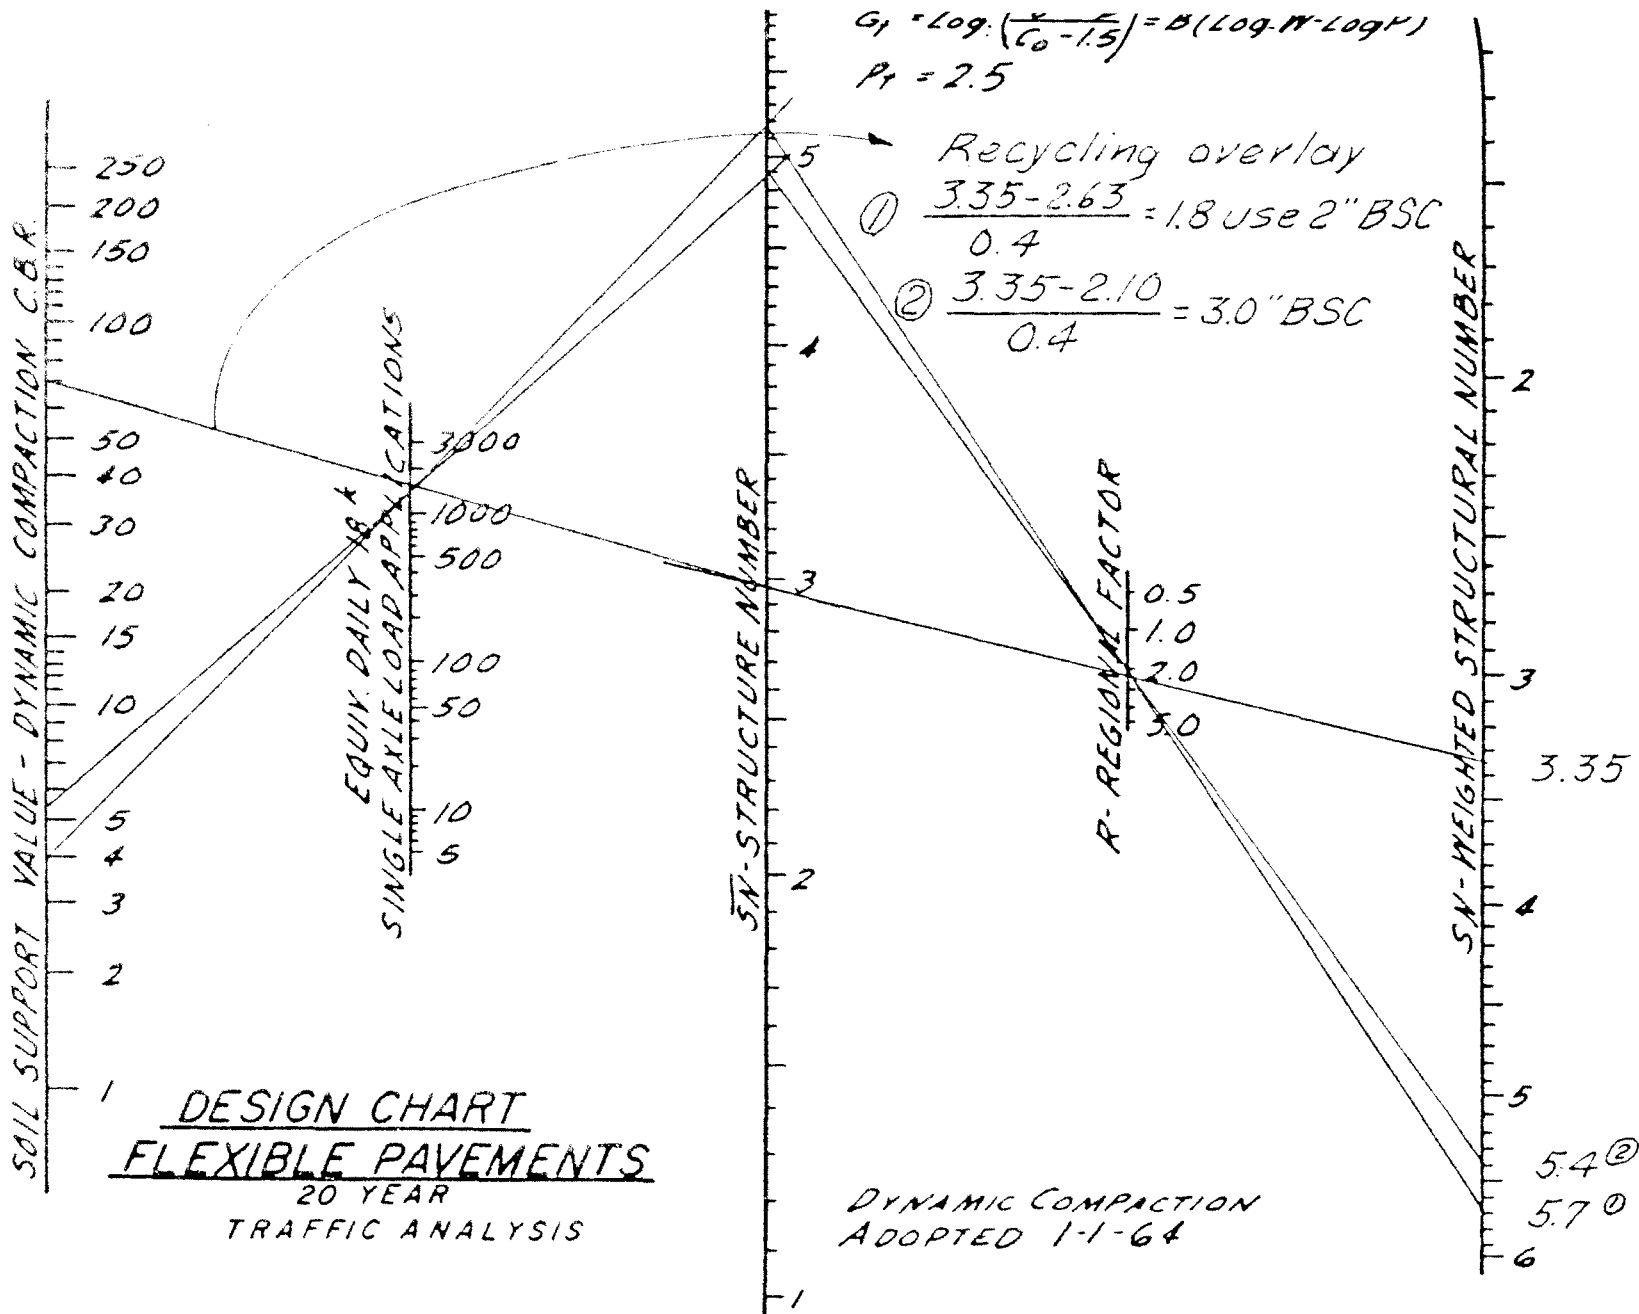 = Log. ( / C₀ - 1.5) = B(Log. W - Log P)
Pₜ = 2.5
Recycling overlay
① 3.35-2.63 / 0.4 = 1.8 use 2" BSC
② 3.35-2.10 / 0.4 = 3.0" BSC
SOIL SUPPORT VALUE - DYNAMIC COMPACTION C.B.R.
250
200
150
100
50
40
30
20
15
10
5
4
3
2
1
EQUIV. DAILY 18 k
SINGLE AXLE LOAD APPLICATIONS
3000
1000
500
100
50
10
5
S̅N̅-STRUCTURE NUMBER
5
4
3
2
1
R- REGIONAL FACTOR
0.5
1.0
2.0
5.0
SN-WEIGHTED STRUCTURAL NUMBER
2
3
3.35
4
5
5.4 ②
5.7 ①
6
DESIGN CHART
FLEXIBLE PAVEMENTS
20 YEAR
TRAFFIC ANALYSIS
DYNAMIC COMPACTION
ADOPTED 1-1-64